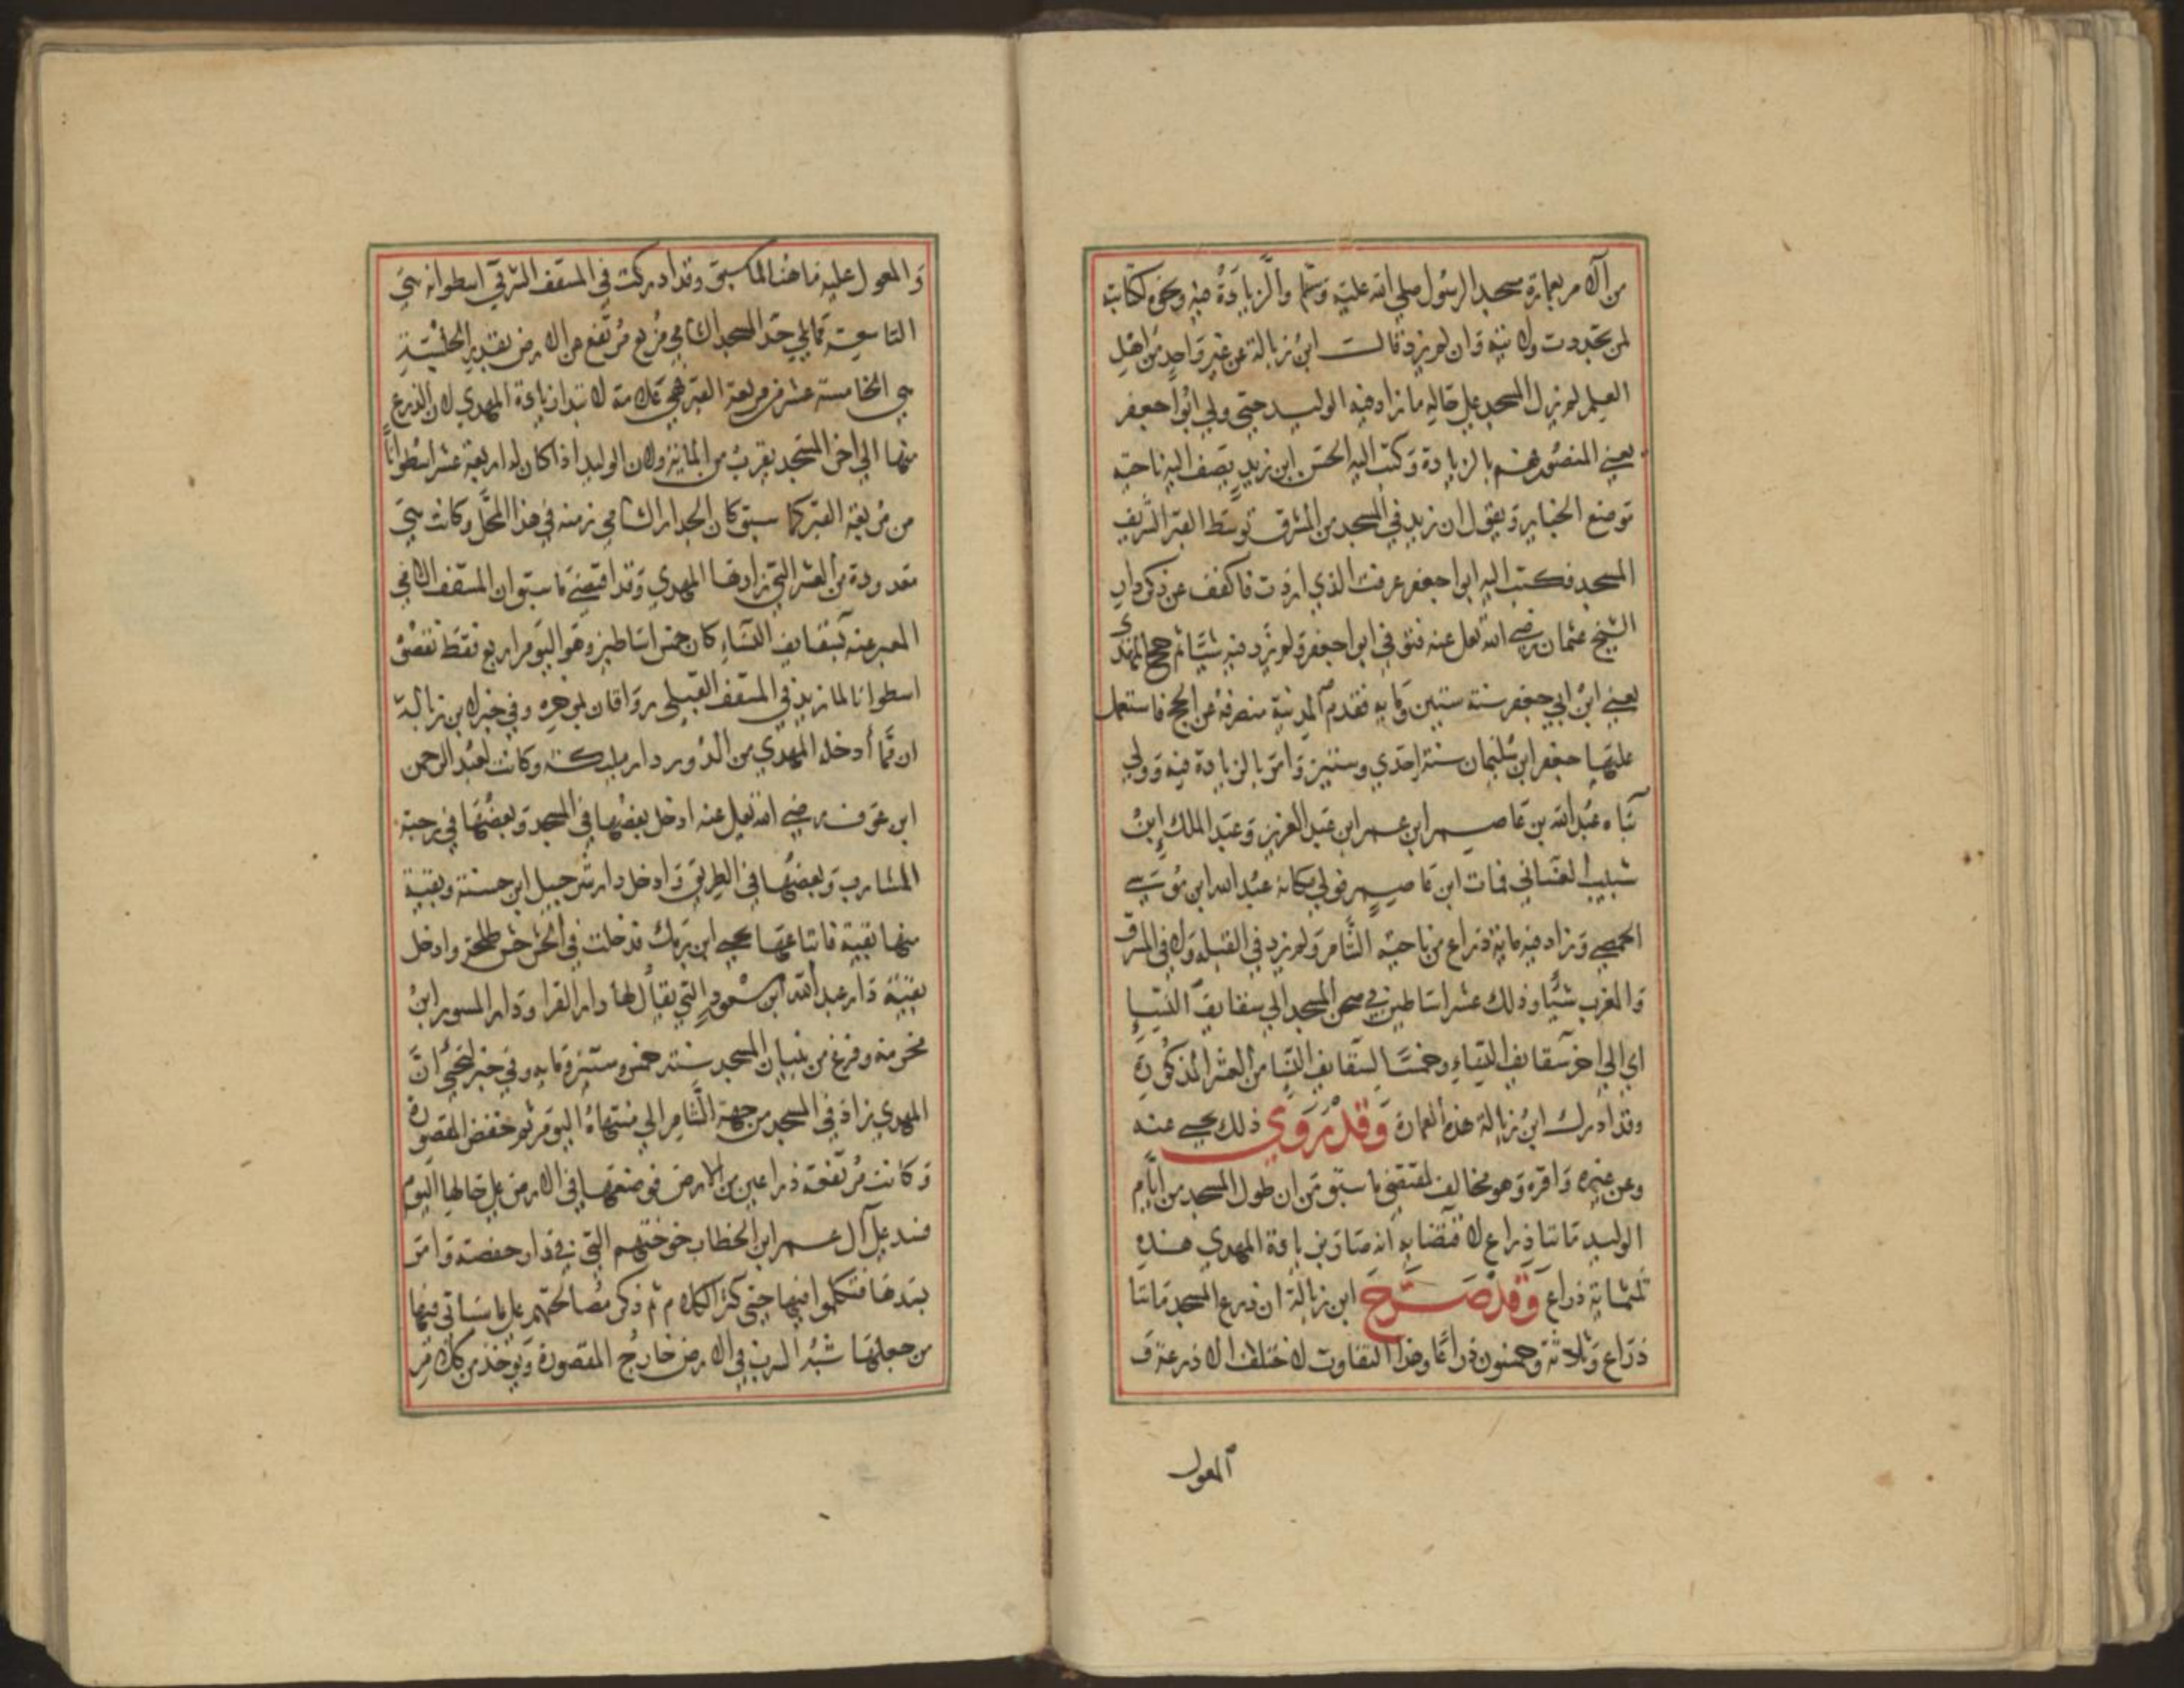 من الامر بعمارة مسجد الرسول صلى الله عليه وسلم والزيادة فيه ونحوه كتابته
لمن تجددت ولايته وان لم يزد قالت ابن زبالة عن غير واحد من اهل
العلم لم يزل المسجد على حاله ما زاد فيه الوليد حتى ولي ابوا جعفر
يعني المنصور فهم بالزيادة وكتب اليه الحسن ابن زيد يصف اليه ناحية
موضع الجنايز ويقول ان زيد في المسجد من المشرق توسط القبر الشريف
المسجد فكتب اليه ابوا جعفر عرفت الذي اردت فاكفف عن ذكر دار
الشيخ عثمان رضي الله تعلى عنه فتوفي ابوا جعفر ولم يزد فيه شيئا ثم حج المهدى
يعني ابن ابي جعفر سنة ستين وماية فقدم المدينة منصرفه عن الحج فاستعمل
عليها جعفر ابن سليمان سنة احدي وستين وامر بالزيادة فيه وولي
بناه عبد الله بن عاصم ابن عمر ابن عبد العزيز وعبد الملك ابن
شبيب الغساني فمات ابن عاصم فولي مكانه عبد الله ابن موسي
الحمصي وزاد فيه ماية ذراع من ناحية الشام ولم يزد في القبلة ولا في المشرق
والمغرب شيئا وذلك عشر اساطين في صحن المسجد الي سقايف النسا
اي الي اخر سقايف النساء وخمسا لسقايف النسا من العشر المذكورة
وقد ادرك ابن زبالة هذه العمارة وقد روي ذلك يحيى عنه
وعن غيره واقره وهو مخالف لمقتضي ما سبق من ان طول المسجد من ايام
الوليد مائتا ذراع لاقتضايه انه صار بزيادة المهدي هذه
ثلثماية ذراع وقد صرح ابن زبالة ان ذرع المسجد مائتا
ذراع وثلاثة وخمسون ذراعا وهذا التفاوت لا ختلاف الاذرعة و
المعول
والمعول عليه ما هنا لما سبق وقد ادركت في المسقف الشرقي اسطوانه هي
التاسعة مما يلي حد المسجد الشامي مربع مرتفع من الارض بقدر الجلسة
هي الخامسة عشر من مربعة القبر فهي علامة لابتدا زيادة المهدي لان الذرع
منها الي اخر المسجد يقرب من الماية ولان الوليد اذا كان له اربعة عشر اسطوانا
من مربعة القبر كما سبق كان الجدار الشامي زمنه في هذا المحل وكانت هي
معدودة من العشر التي زادها المهدي وقد اقتضى ما سبق ان المسقف الشامي
المعبر عنه بسقايف النساء كان خمس اساطين وهو اليوم اربع فقط نقص
اسطوانا لما زيد في المسقف القبلي رواقان بموخره وفي خبر لابن زبالة
ان مما أدخله المهدي من الدور دار مليكة وكانت لعبد الرحمن
ابن عوف رضي الله تعلى عنه ادخل بعضها في المسجد وبعضها في رحبة
المشارب وبعضها في الطريق وادخل دار شرجبيل ابن حسنة وبقية
منها بقية فابتاعها يحيى ابن برمك فدخلت في الحش حش طلحة وادخل
بقية دار عبد الله ابن مسعود التي يقال لها دار القرا ودار المسور ابن
مخرمة وفرغ من بنيان المسجد سنة خمس وستين وماية وفي خبر ليحيى ان
المهدي زاد في المسجد من جهة الشام الي منتهاه اليوم ثم خفض المقصورة
وكانت مرتفعة ذراعين من الارض فوضعها في الارض على حالها اليوم
فسد على آل عمر ابن الخطاب خوختهم التي في دار حفصة وامر
بسدها فتكلموا فيها حتى كثر الكلام ثم ذكر مصالحتهم على ما سياتى فيها
من جعلها شبه السرب في الارض خارج المقصورة ويوخذ من كلام